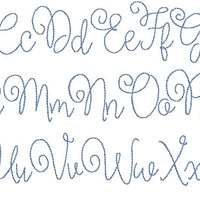 Cc Dd Ee Ff G
Mm Nn Oo P
Uu Vv Ww Xx